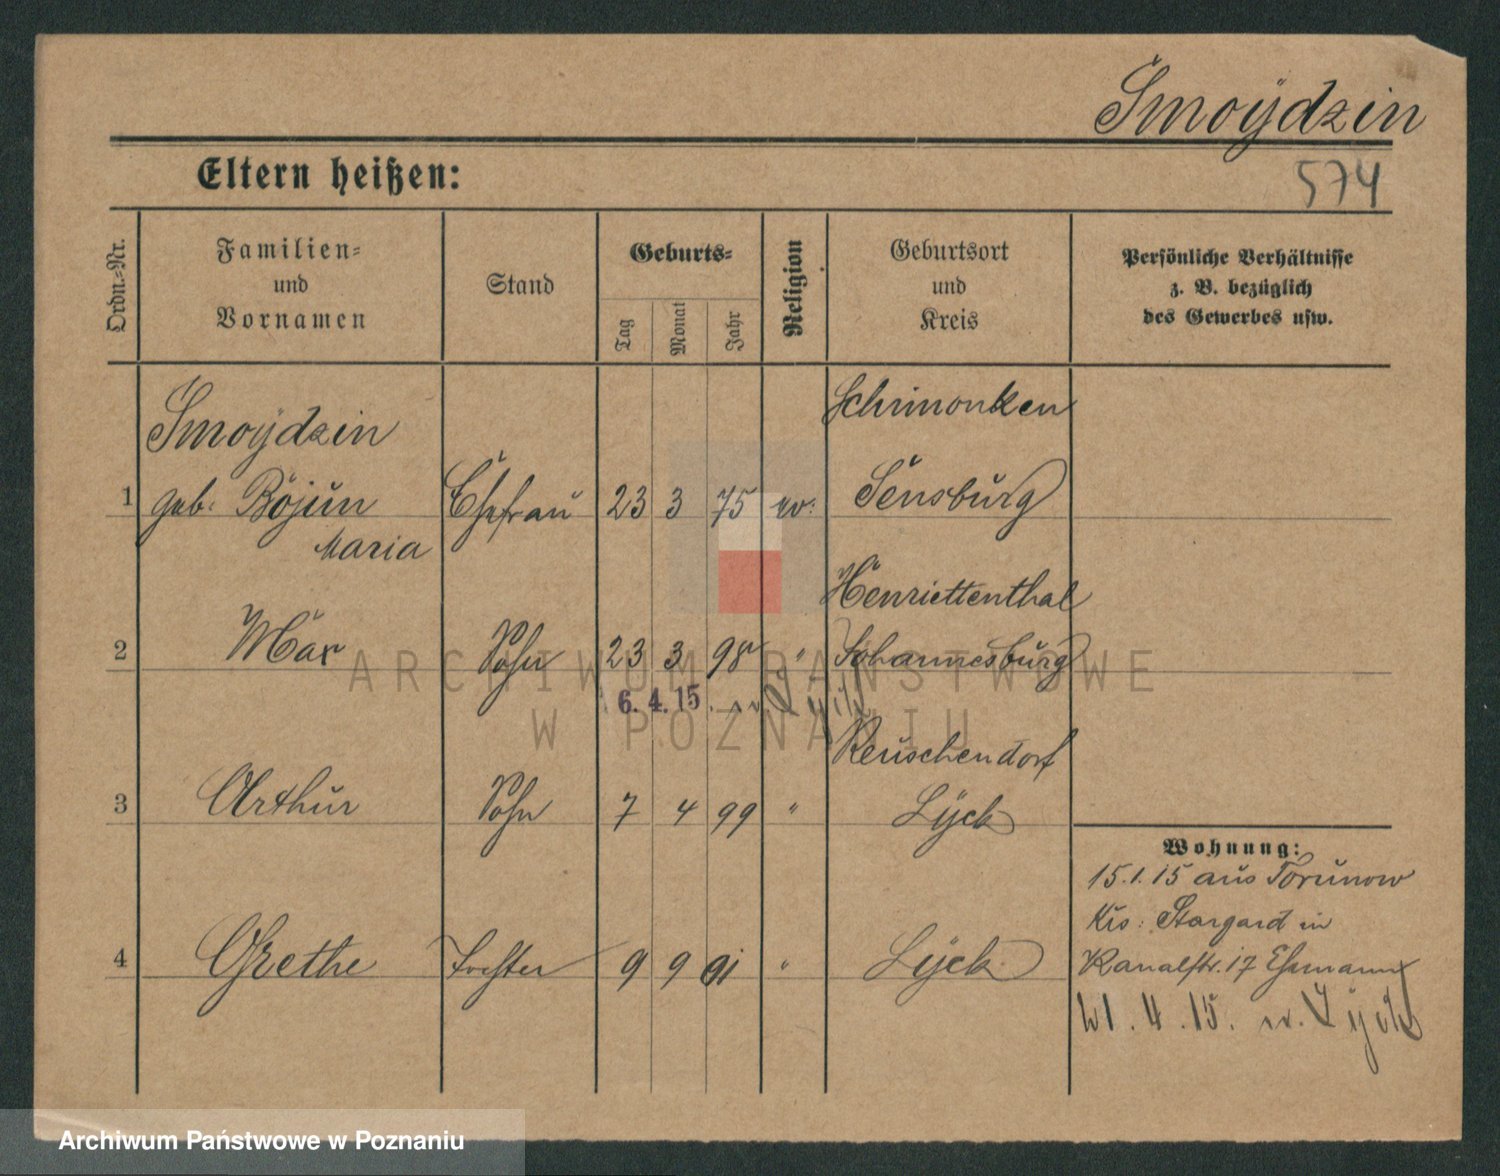 Smoÿdzin
574
Eltern heißen:
Ordn.-Nr.
Familien-
und
Vornamen
Stand
Geburts-
Tag
Monat
Jahr
Religion
Geburtsort
und
Kreis
Persönliche Verhältnisse
z. B. bezüglich
des Gewerbes usw.
Smoÿdzin
1 geb. Bojun Ehefrau 23 3 75 ev.
Maria
Schimonken
Sensburg
2 Max Sohn 23 3 98 "
Henriettenthal
Johannesburg
6. 4. 15. n. Lyck
3 Arthur Sohn 7 4 99 "
Reuschendorf
Lÿck
4 Grethe Tochter 9 9 01 " Lÿck
Wohnung:
15.1.15 aus Torunow
Krs: Stargard in
Kanalstr. 17 Ehemann
1. 4. 15. n. Lyck
ARCHIWUM PAŃSTWOWE
W POZNANIU
Archiwum Państwowe w Poznaniu